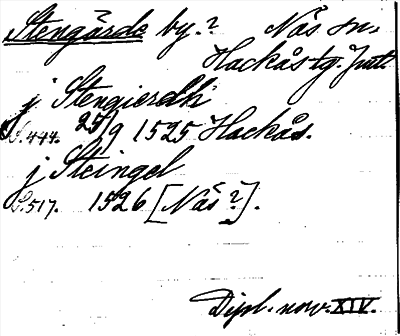 Stengärde by.? Näs sn.
Hackås tg. Jmtl.
j Stengierdh
S. 444. 25/9 1525 Hackås.
j Steingel
S. 517. 1526 [Näs?].
Dipl. nov. XIV.